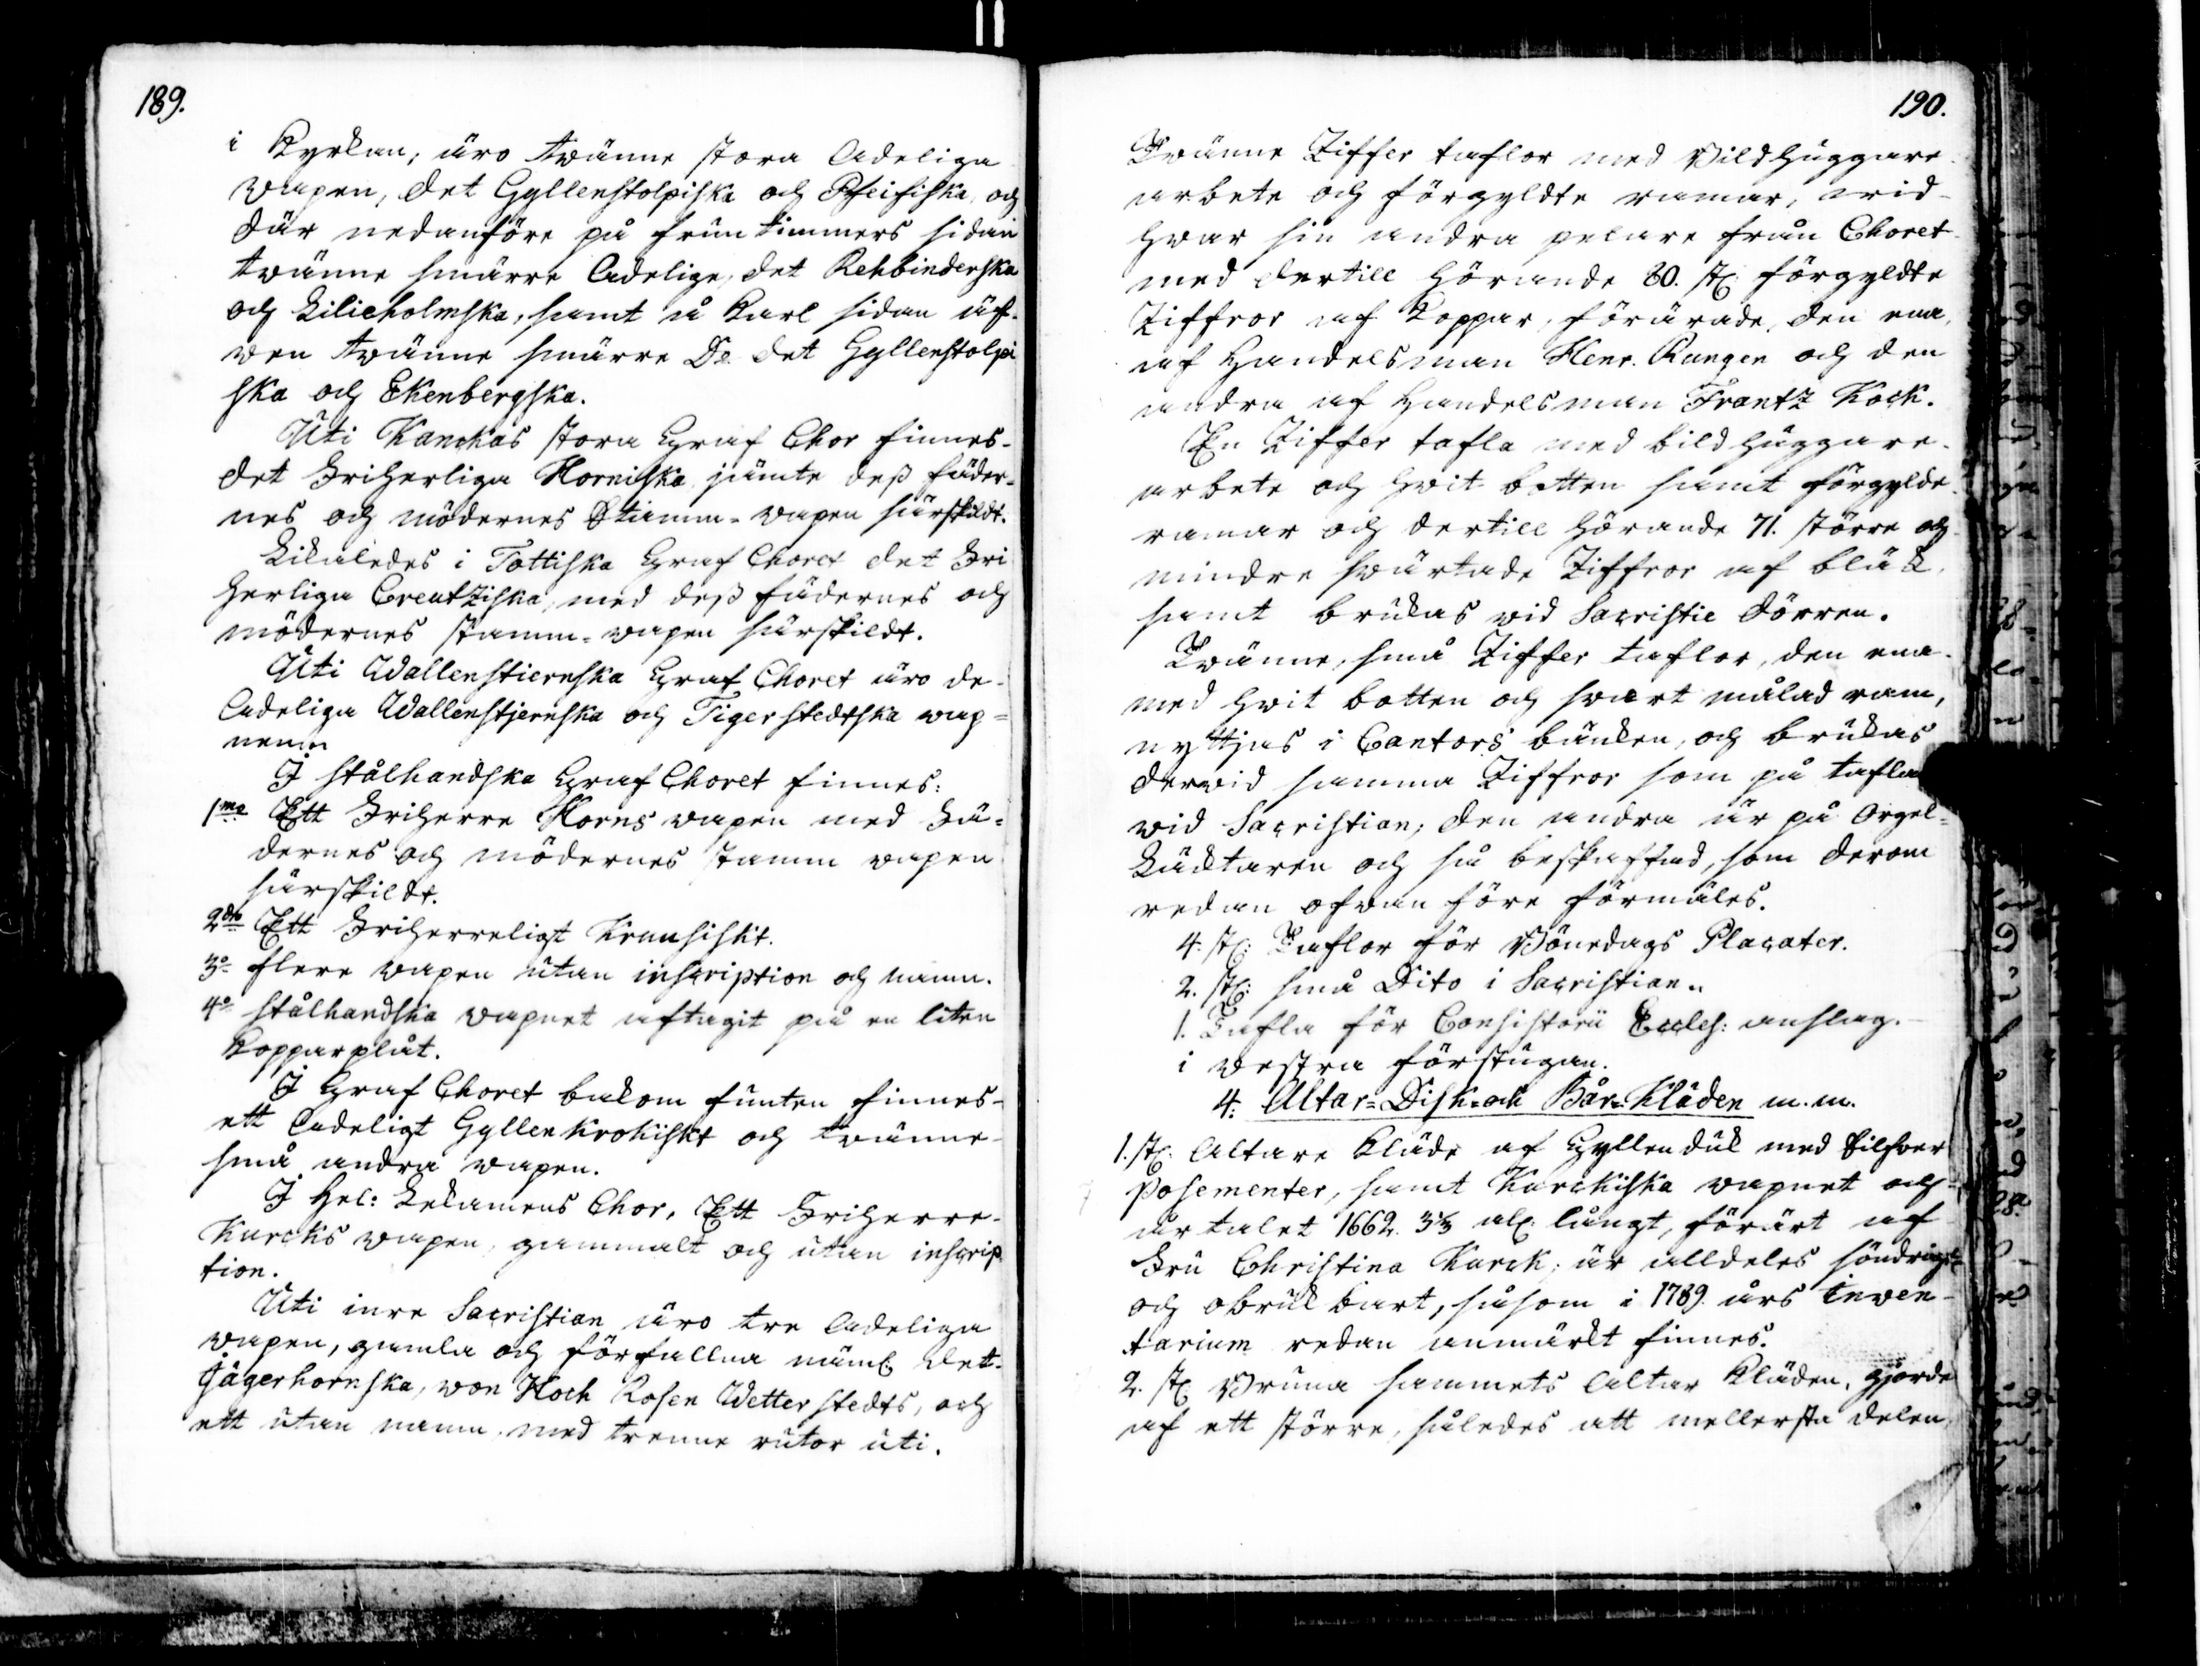 189.
i Kyrkan, äro twänne stora Adeliga
wapen, det Gyllenstolpiska och Pfeifiska, och
där nedanföre på fruntimmers sidan
twänne smärre Adelige, det Rehbinderska
och Lilieholmska, samt å Karl sidan äf-
wen twänne smärre Do. det Gyllenstolpi
ska och Ekenbergska.
Uti Kanckas stora Graf Chor finnes-
det Friherliga Horniska jämte dess fäder-
nes och mödernes Stamm-wapen särskildt.
Likaledes i Tottiska Graf Choret det Fri
herliga Creutziska, med dess fädernes och
mödernes stamm-wapen särskildt.
Uti Wallenstiernska Graf Choret äro de-
Adeliga Wallenstjernska och Tigerstedtska wap=
nen.
I stålhandska Graf Choret finnes:
1mo Ett Friherre Horns wapen med Fä-
dernes och mödernes stamm wapen
särskildt.
2do Ett Friherreligt Krunsiskt.
3o flere wapen utan inscription och namn.
4o stålhandska wapnet aftagit på en liten
Kopparplåt.
I Graf Choret bakom funten finnes-
ett Adeligt Gyllenkrokiskt och twänne-
små andra wapen.
I Hel: Lekamens Chor, Ett Friherre-
Kurcks wapen, gammalt och utan inscrip
tion.
Uti inre Sacristian äro tre Adeliga
wapen, gamla och förfallna näml. det-
Jägerhornska, von Koch Rosen Wetterstedts, och
ett utan namn med trenne rutor uti.
190.
Twänne Ziffer taflor med Bildhuggare-
arbete och förgyldte ramar, wid-
hwar sin andra pelare från Choret-
med dertill hörande 80. st. förgyldte
Ziffror af Koppar, förärade, den ena,
af Handelsman Henr. Rungen och den
andra af Handelsman Frantz Kock.
En Ziffer tafla med bildhuggare-
arbete och hwit botten samt förgylde
ramar och dertill hörande 71. större och
mindre swärtade Ziffror af bläk,
samt brukas wid Sacristie dörren.
Twänne, små Ziffer taflor, den ena-
med hwit botten och swart målad ram,
nyttjas i Cantors bänken, och brukas
derwid samma Ziffror som på tafla
wid Sacristian; den andra är på Orgel-
Läktaren och så beskaffad, som derom
redan ofwan före förmäles.
4. st: Taflor för Bönedags Placater.
2. st: små Dito i Sacristian.
1. Tafla för Consistorii Eccles: anslag.-
i westra förstugan.
4. Altar= Disk= och Bår=Kläden m.m.
1. st: Altare Kläde af Gyllenduk med Silfver
posementer, samt Kurckiska wapnet och
årtalet 1662. 3⅓ al: långt, förärt af
Fru Christina Kurck; är alldeles söndrigt
och obrukbart, såsom i 1789. års Inven-
tarium redan anmärkt finnes.
2. st. Bruna sammets Altar Kläden, gjorde
af ett större, således att mellersta delen,